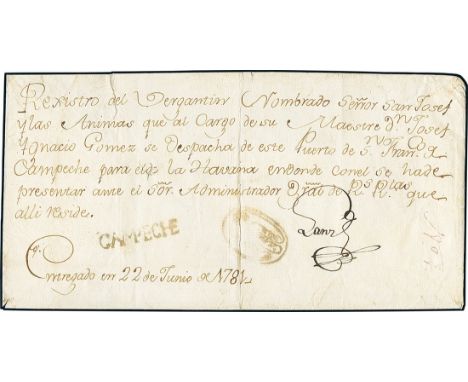 Rexistro del Vergantin Nombrado Señor San Josef
y las Animas que al Cargo de su Maestre Dn. Josef
Ygnacio Gomez se Despacha de este Puerto de Sn. Fran.co de
Campeche para el de la Havana en donde con el se ha de
presentar ante el Sôr. Administrador de Rs. que
alli reside.
CAMPECHE
Lanz
Entregado en 22 de Junio de 1781